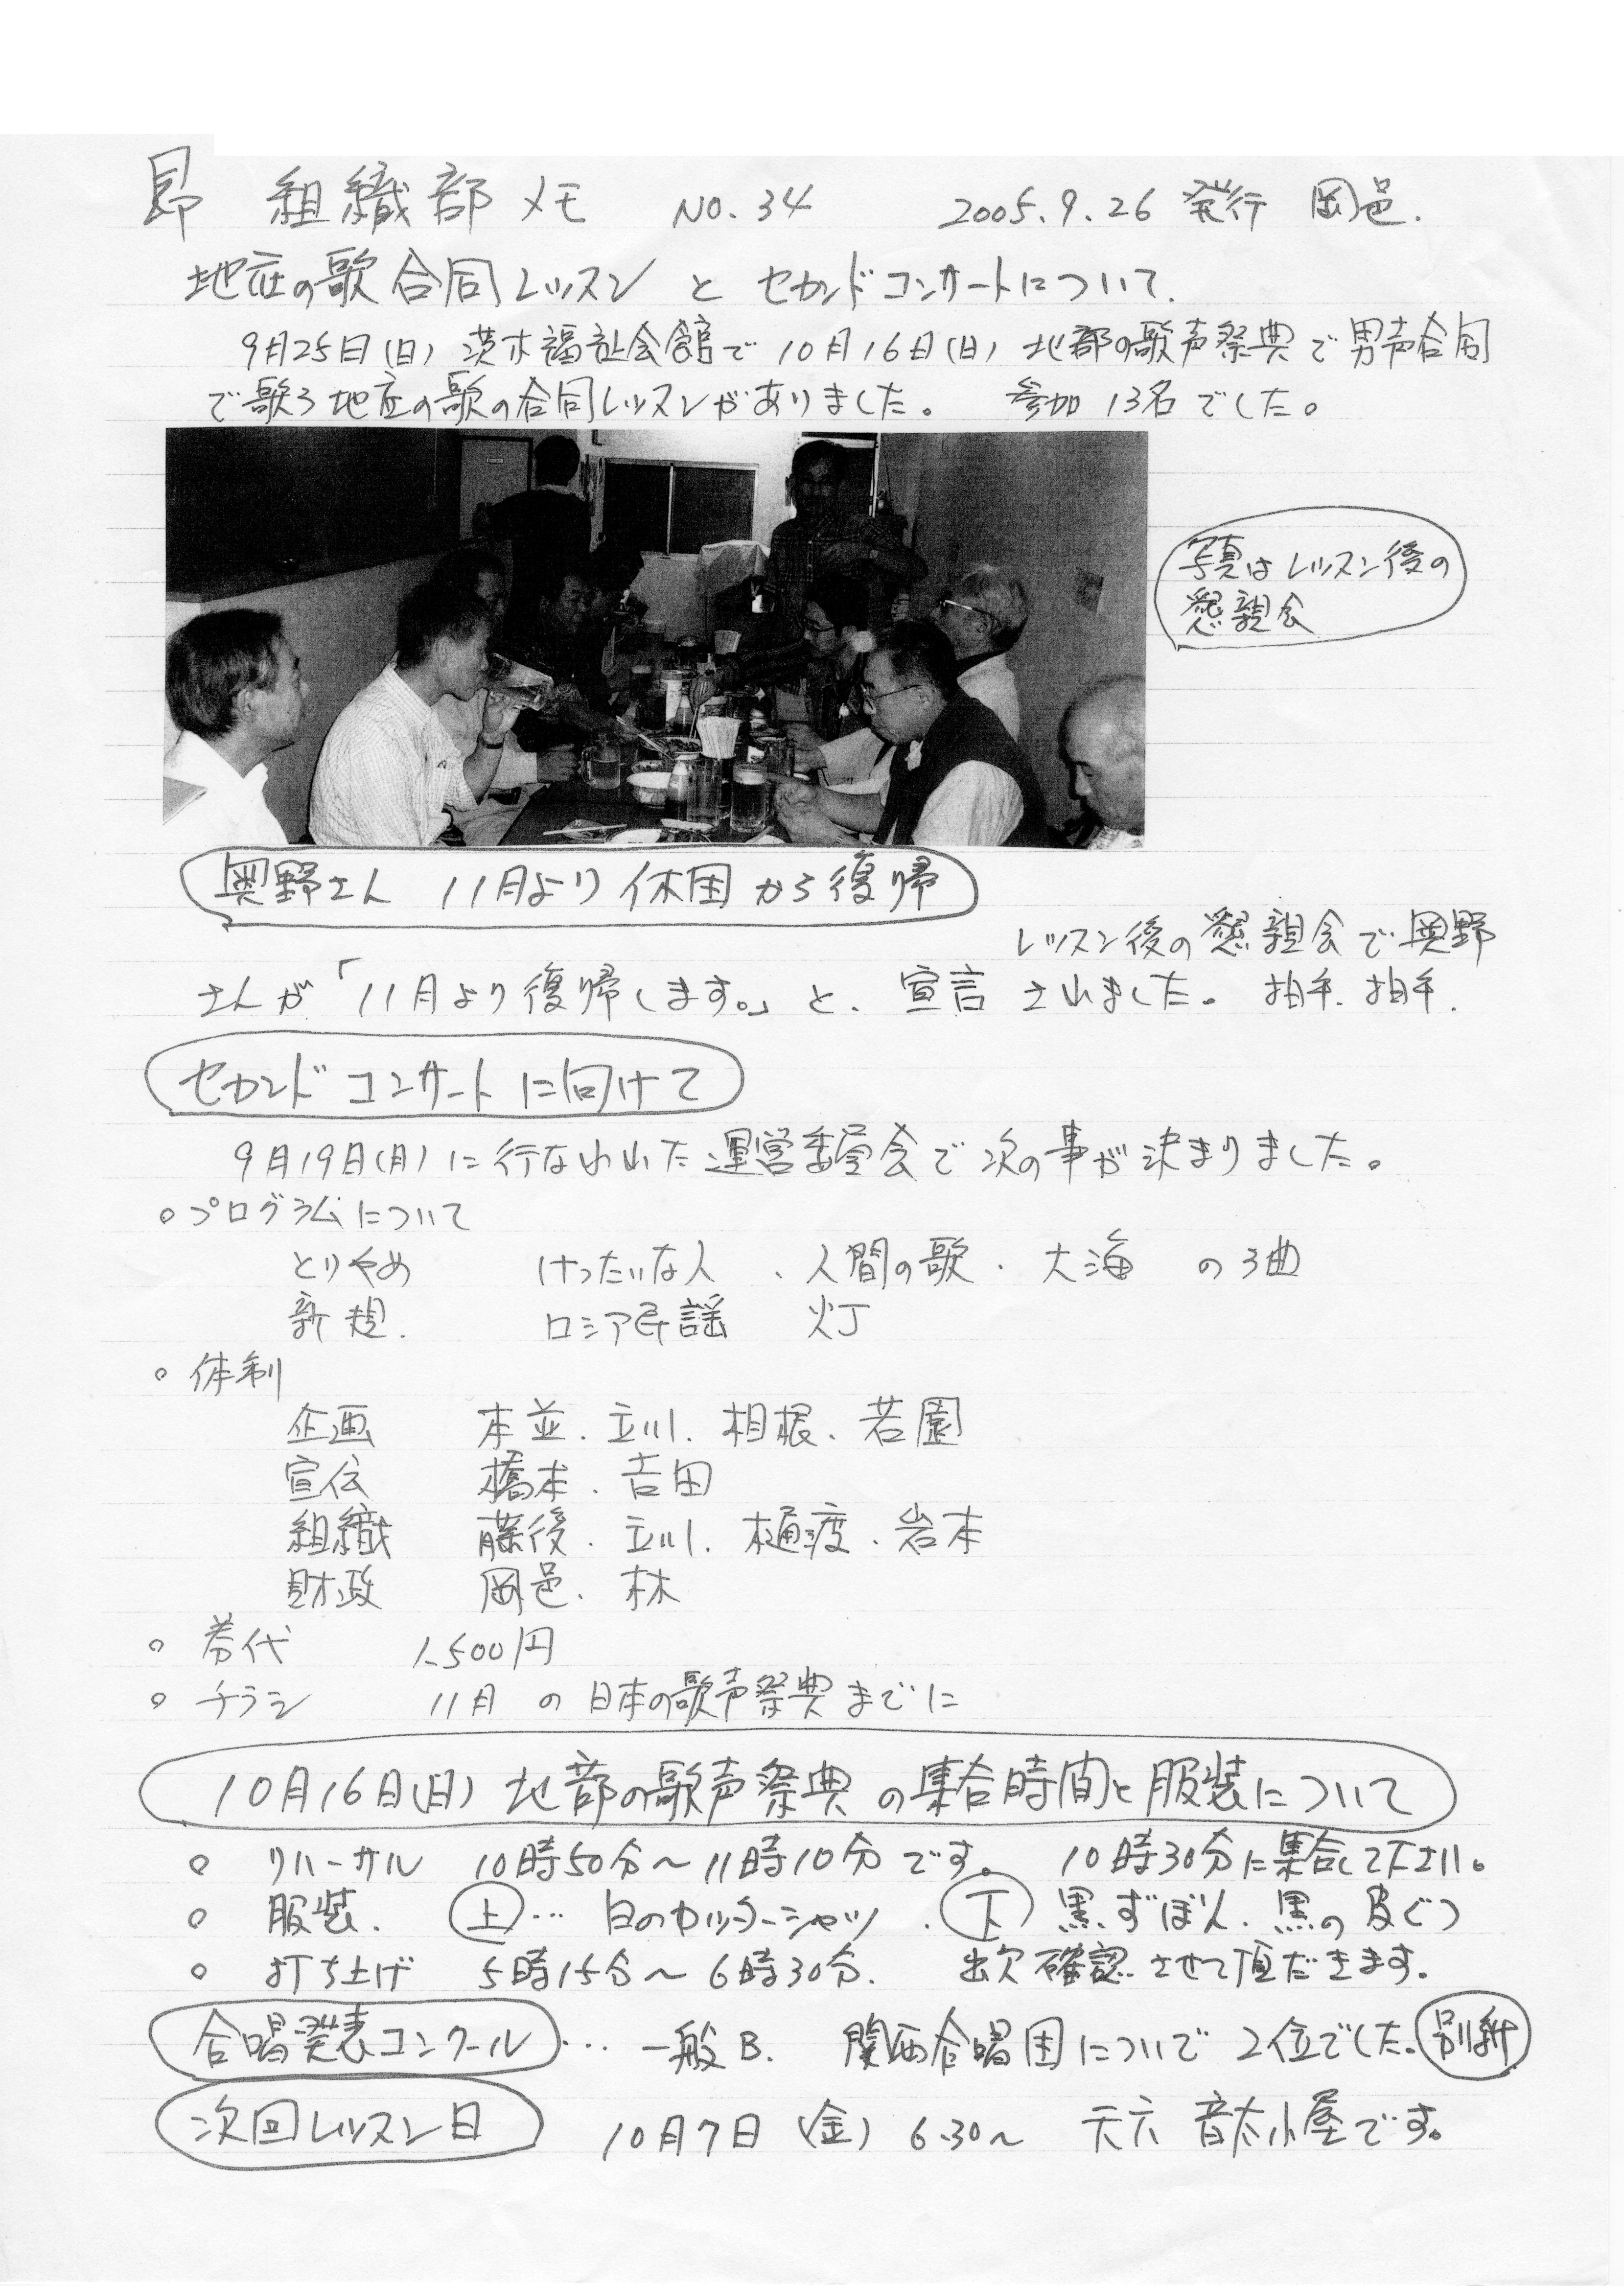 昴 組織部メモ NO.34 2005.9.26 発行 岡邑.
地底の歌 合同レッスン と セカンドコンサートについて.
9月25日(日) 茨木福祉会館で 10月16日(日) 北部の歌声祭典で男声合同
で歌う地底の歌の合同レッスンがありました。 参加 13名でした。
写真はレッスン後の
懇親会
奥野さん 11月より休団から復帰
レッスン後の懇親会で奥野
さんが「11月より復帰します。」と、宣言されました。拍手.拍手.
セカンドコンサートに向けて
9月19日(月)に行なわれた運営委員会で次の事が決まりました。
○プログラムについて
とりやめ けったいな人 、人間の歌. 大海 の3曲
新規. ロシア民謡 灯
○ 体制
企画 本並.立川.相根.若園
宣伝 橋本.吉田
組織 藤後.立川.樋渡.岩本
財政 岡邑.林
○ 券代 1.500円
○ チラシ 11月 の日本の歌声祭典までに
10月16日(日) 北部の歌声祭典の集合時間と服装について
○ リハーサル 10時50分〜11時10分です。 10時30分に集合して下さい。
○ 服装. 上… 白のカッターシャツ . 下 黒.ずぼん.黒の皮ぐつ
○ 打ち上げ 5時15分〜6時30分. 出欠確認させて頂だきます。
合唱発表コンクール… 一般B. 関西合唱団についで2位でした。別紙
次回レッスン日 10月7日(金) 6.30〜 天六 音太小屋です。